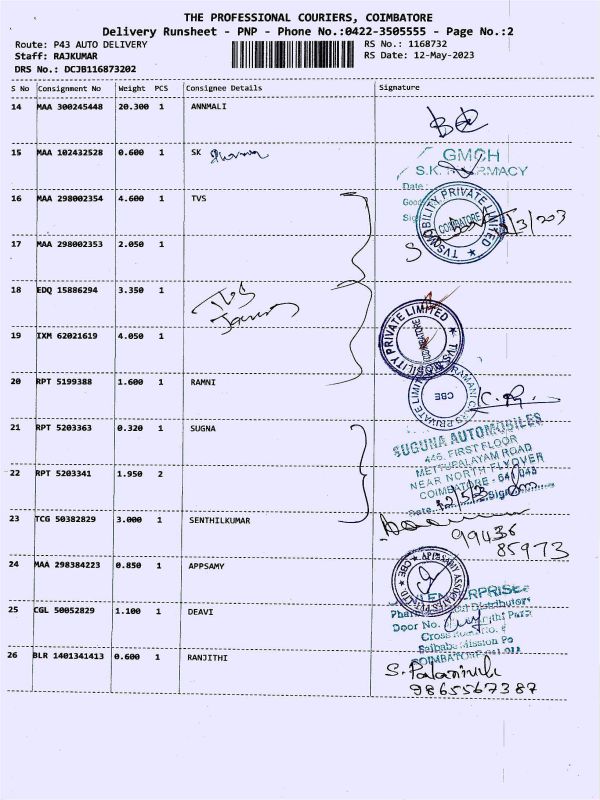 THE PROFESSIONAL COURIERS, COIMBATORE
Delivery Runsheet - PNP - Phone No.:0422-3505555 - Page No.:2
Route: P43 AUTO DELIVERY RS No.: 1168732
Staff: RAJKUMAR RS Date: 12-May-2023
DRS No.: DCJB116873202
S No Consignment No Weight PCS Consignee Details Signature
14 MAA 300245448 20.300 1 ANNMALI
15 MAA 102432528 0.600 1 SK
GMCH
S.K. PHARMACY
Date:
16 MAA 298002354 4.600 1 TVS
TVS MOBILITY PRIVATE LIMITED
COIMBATORE
17 MAA 298002353 2.050 1
18 EDQ 15886294 3.350 1 TVS
19 IXM 62021619 4.050 1
TVS MOBILITY PRIVATE LIMITED
COIMBATORE
20 RPT 5199388 1.600 1 RAMNI
RAMANI CARS PRIVATE LIMITED
CBE
21 RPT 5203363 0.320 1 SUGNA
SUGUNA AUTOMOBILES
446, FIRST FLOOR
METTUPALAYAM ROAD
NEAR NORTH FLYOVER
COIMBATORE - 641 043
22 RPT 5203341 1.950 2
Date. Sign
23 TCG 50382829 3.000 1 SENTHILKUMAR
99436
85973
24 MAA 298384223 0.850 1 APPSAMY
CBE
25 CGL 50052829 1.100 1 DEAVI
ENTERPRISE
Distributors
Door No.
Cross
Saibaba Mission Po
COIMBATORE
26 BLR 1401341413 0.600 1 RANJITHI
9865567387